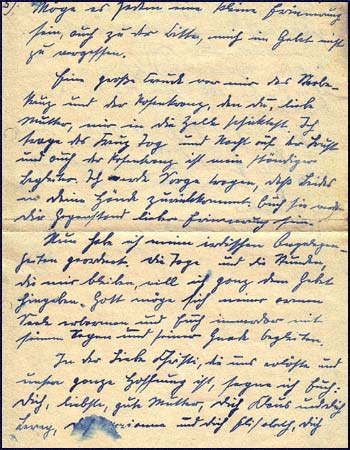 3) Möge es Jedem eine kleine Erinnerung
sein, auch zu der Bitte, mich im Gebet nicht
zu vergessen.
Eine große Freude war mir das Sterbe-
kreuz und der Rosenkranz, den du, liebe
Mutter, mir in die Zelle schicktest. Ich
trage das Kreuz Tag und Nacht auf der Brust
und auch der Rosenkranz ist mein ständiger
Begleiter. Ich werde Sorge tragen, daß beides
in deine Hände zurückkommt. sie werden
dir Gegenstand lieber Erinnerung sein.
Nun habe ich meine irdischen Angelegen-
heiten geordnet. Die Tage und die Stunden,
die mir bleiben, will ich ganz dem Gebet
hingeben. Gott möge sich meiner armen
Seele erbarmen und Euch immerdar mit
seinem Segen und seiner Gnade begleiten.
In der Liebe Christi, die uns erlöste und
unsre ganze Hoffnung ist, segne ich Euch:
Dich, liebste, gute Mutter, Dich und dich
und dich Elisabeth, Dich